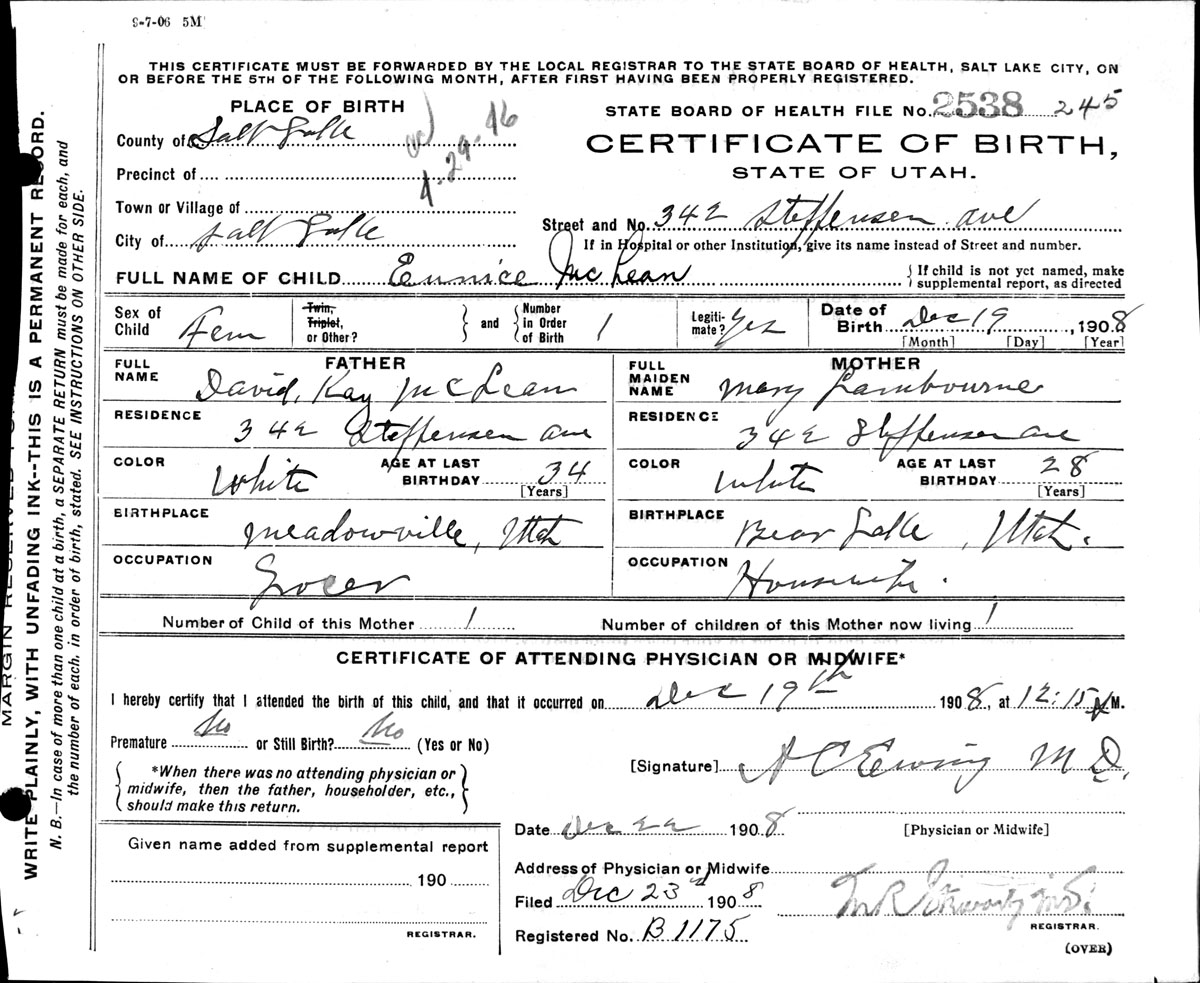 9-7-06 5M
THIS CERTIFICATE MUST BE FORWARDED BY THE LOCAL REGISTRAR TO THE STATE BOARD OF HEALTH, SALT LAKE CITY, ON
OR BEFORE THE 5TH OF THE FOLLOWING MONTH, AFTER FIRST HAVING BEEN PROPERLY REGISTERED.
PLACE OF BIRTH
STATE BOARD OF HEALTH FILE No. 2538 245
County of Salt Lake
4-29-46
CERTIFICATE OF BIRTH,
STATE OF UTAH.
Precinct of
Town or Village of
Street and No. 342 Steffensen ave
City of Salt Lake
If in Hospital or other Institution, give its name instead of Street and number.
FULL NAME OF CHILD Eunice McLean
If child is not yet named, make
supplemental report, as directed
Sex of Child Fem
Twin, Triplet, or Other?
and
Number in Order of Birth 1
Legitimate? Yes
Date of Birth Dec 19, 1908
[Month] [Day] [Year]
FATHER
FULL NAME David Kay McLean
MOTHER
FULL MAIDEN NAME Mary Lambourne
RESIDENCE 342 Steffensen ave
RESIDENCE 342 Steffensen ave
COLOR White AGE AT LAST BIRTHDAY 34 [Years]
COLOR White AGE AT LAST BIRTHDAY 28 [Years]
BIRTHPLACE Meadowville, Utah
BIRTHPLACE Bear Lake, Utah.
OCCUPATION Grocer
OCCUPATION Housewife.
Number of Child of this Mother 1 Number of children of this Mother now living 1
CERTIFICATE OF ATTENDING PHYSICIAN OR MIDWIFE*
I hereby certify that I attended the birth of this child, and that it occurred on Dec 19th 1908, at 12:15 M.
Premature No or Still Birth? No (Yes or No)
*When there was no attending physician or
midwife, then the father, householder, etc.,
should make this return.
[Signature] A C Ewing M D.
Date Dec 22 1908 [Physician or Midwife]
Given name added from supplemental report
190
REGISTRAR.
Address of Physician or Midwife
Filed Dec 23rd 1908
REGISTRAR.
Registered No. B 1175
(OVER)
MARGIN RESERVED FOR
WRITE PLAINLY, WITH UNFADING INK--THIS IS A PERMANENT RECORD.
N. B.—In case of more than one child at a birth, a SEPARATE RETURN must be made for each, and
the number of each, in order of birth, stated. SEE INSTRUCTIONS ON OTHER SIDE.